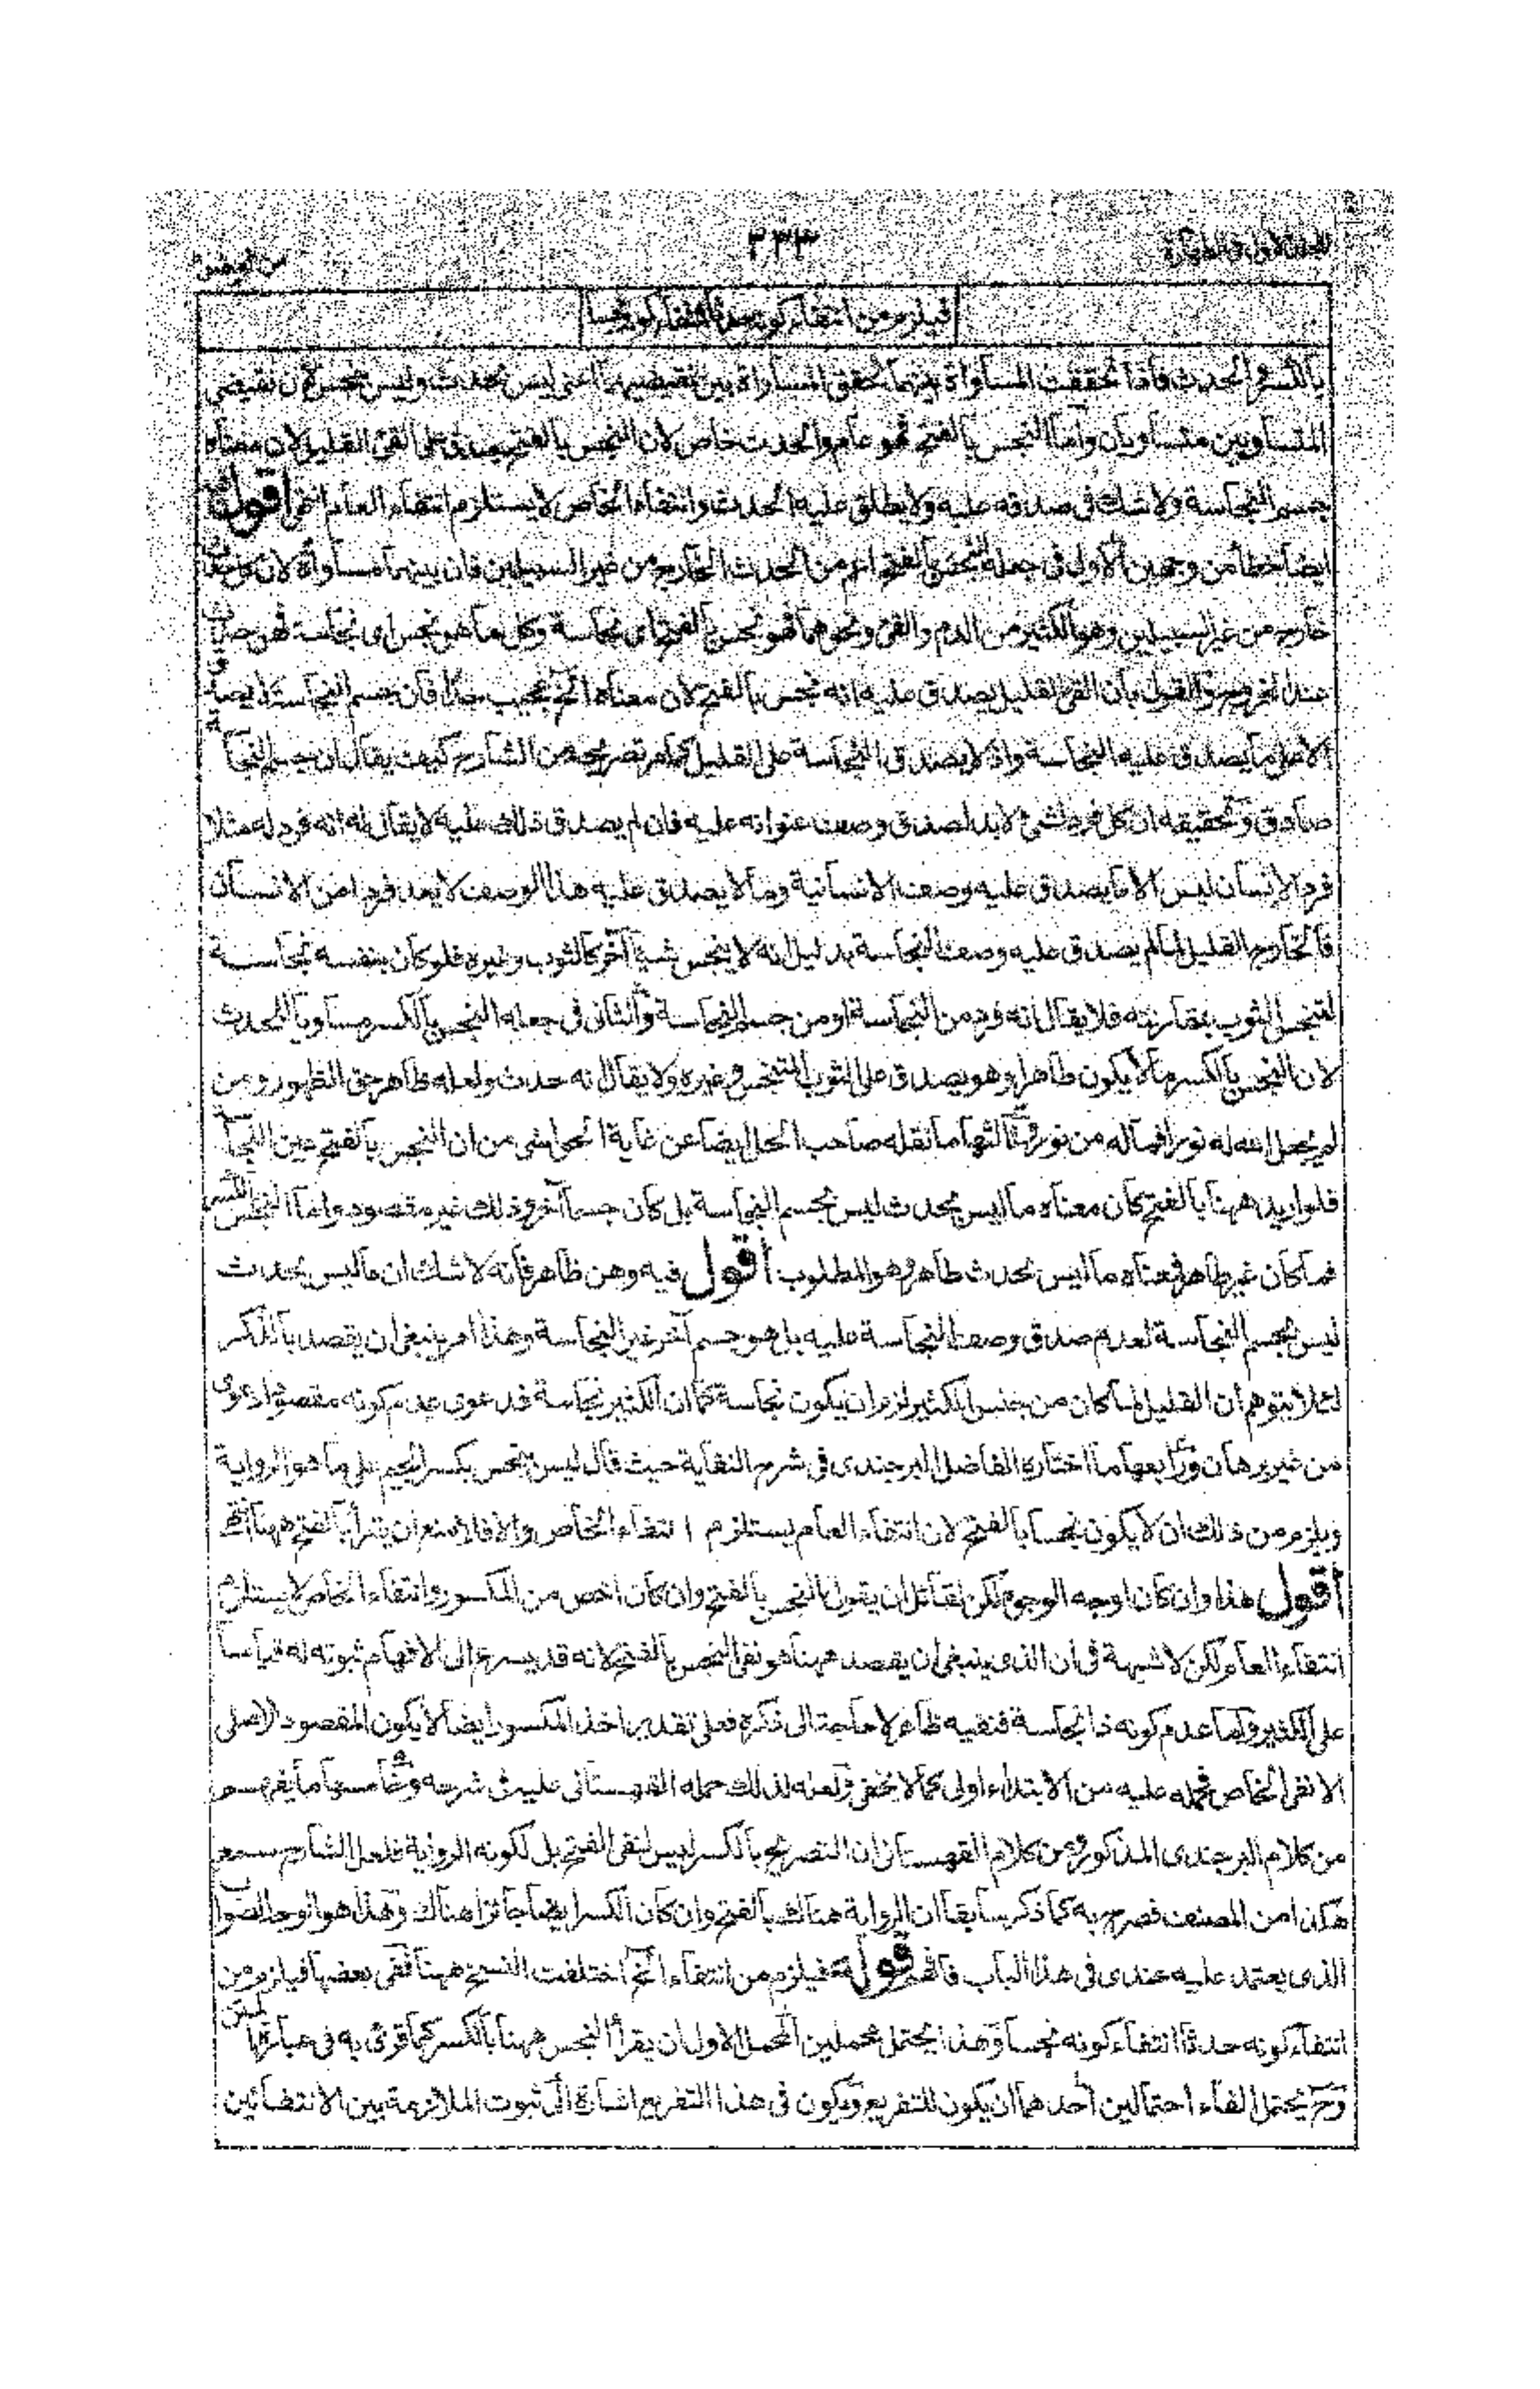 ٢٣٣
فيلزم من انتفاء كونه حدثا انتفاء كونه نجسا
بالكسر والحدث واذا تحققت المساواة بينهما تحقق المساواة بين نقيضيهما اعنى ليس بحدث وليس بنجس لان نقيضى
المتساويين متساويان واما النجس بالفتح فهو عام والحدث خاص لان النجس بالفتح يصدق على القئ القليل لان معناه
جسم النجاسة ولا شك فى صدقه عليه ولا يطلق عليه الحدث وانتفاء الخاص لا يستلزم انتفاء العام انتهى اقول
ايضا خطأ من وجهين الاول فى جعله النجس بالفتح اعم من الحدث الخارج من غير السبيلين فان بينهما مساواة لان كل حدث
خارج من غير السبيلين وهو الكثير من الدم والقئ ونحوهما فهو نجس بالفتح اى نجاسة وكل ما هو نجس اى نجاسة فهى حدث
عند الخروج والقول بان القئ القليل يصدق عليه انه نجس بالفتح لان معناه الخ عجيب جدا فان جسم النجاسة لا يصدق
الا على ما يصدق عليه النجاسة واذ لا يصدق النجاسة على القليل كما مر تصريحه من الشارح كيف يقال ان جسم النجاسة
صادق وتحقيقه ان كل فرد لشئ لا بد لصدق وصف عنوانه عليه فان لم يصدق ذلك عليه لا يقال له انه فرد له مثلا
فرد الانسان ليس الا ما يصدق عليه وصف الانسانية وما لا يصدق عليه هذا الوصف لا يعد فردا من الانسان
فالخارج القليل لما لم يصدق عليه وصف النجاسة بدليل انه لا ينجس شيئا آخر كالثوب وغيره فلو كان بنفسه نجاسة
لتنجس الثوب بمقارنته فلا يقال انه فرد من النجاسة او من جسم النجاسة والثانى فى جعله النجس بالكسر مساويا للحدث
لان النجس بالكسر ما لا يكون طاهرا وهو يصدق على الثوب المتنجس وغيره ولا يقال انه حدث ولعله ظاهر حق الظهور ومن
لم يجعل الله له نورا فما له من نور وثالثها ما نقله صاحب الحل ايضا عن غاية الحواشى من ان النجس بالفتح عين النجاسة
فلو اريد ههنا بالفتح كان معناه ما ليس بحدث ليس بجسم النجاسة بل كان جسما آخر وذلك غير مقصود واما النجس بالكسر
فما كان غير طاهر فمعناه ما ليس بحدث طاهر وهو المطلوب اقول فيه وهن ظاهر فانه لا شك ان ما ليس بحدث
ليس بجسم النجاسة لعدم صدق وصف النجاسة عليه بل هو جسم آخر غير النجاسة وهذا امر ينبغى ان يقصد بالذكر
لئلا يتوهم ان القليل لما كان من جنس الكثير لزم ان يكون نجاسة كما ان الكثير نجاسة فدعوى عدم كونه مقصودا دعوى
من غير برهان ورابعها ما اختاره الفاضل البرجندى فى شرح النقاية حيث قال ليس بنجس بكسر الجيم على ما هو الرواية
ويلزم من ذلك ان لا يكون نجسا بالفتح لان انتفاء العام يستلزم انتفاء الخاص والا فلا منع ان يقرأ بالفتح ههنا انتهى
اقول هذا وان كان اوجه الوجوه لكن لقائل ان يقول النجس بالفتح وان كان اخص من المكسور وانتفاء الخاص لا يستلزم
انتفاء العام لكن لا شبهة فى ان الذى ينبغى ان يقصد ههنا هو نفى النجس بالفتح لانه قد يسرع الى الافهام ثبوته له قياسا
على الكثير واما عدم كونه ذا نجاسة فنفيه ظاهر لا حاجة الى ذكره فعلى تقدير اخذ المكسور ايضا لا يكون المقصود الاصلى
الا نفى الخاص فحمله عليه من الابتداء اولى كما لا يخفى ولعله لذلك حمله القهستانى عليه فى شرحه وخامسها ما يفهم
من كلام البرجندى المذكور ومن كلام القهستانى ان التصريح بالكسر ليس لنفى الفتح بل لكونه الرواية فلعل الشارح سمع
هكذا من المصنف فصرح به كما ذكر سابقا ان الرواية هنالك بالفتح وان كان الكسر ايضا جائزا هناك وهذا هو الوجه الصواب
الذى يعتمد عليه عندى فى هذا الباب فافهم قوله فيلزم من انتفاء الخ اختلفت النسخ ههنا ففى بعضها فيلزم من
انتفاء كونه حدثا انتفاء كونه نجسا وهذا يحتمل محملين المحمل الاول ان يقرأ النجس ههنا بالكسر كما قرئ به فى عبارة المتن
وح يحتمل الفاء احتمالين احدهما ان يكون للتفريع ويكون فى هذا التفريع اشارة الى ثبوت الملازمة بين الانتفائين